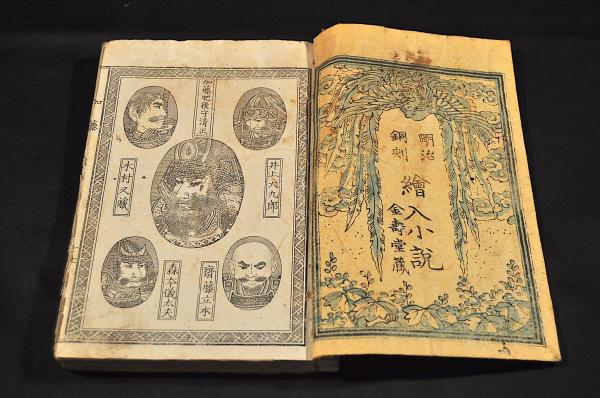 明治
銅刻
繪入小説
金壽堂藏
加藤肥後守清正
井上大九郎
木村又蔵
齋藤立本
森本儀太夫
加藤